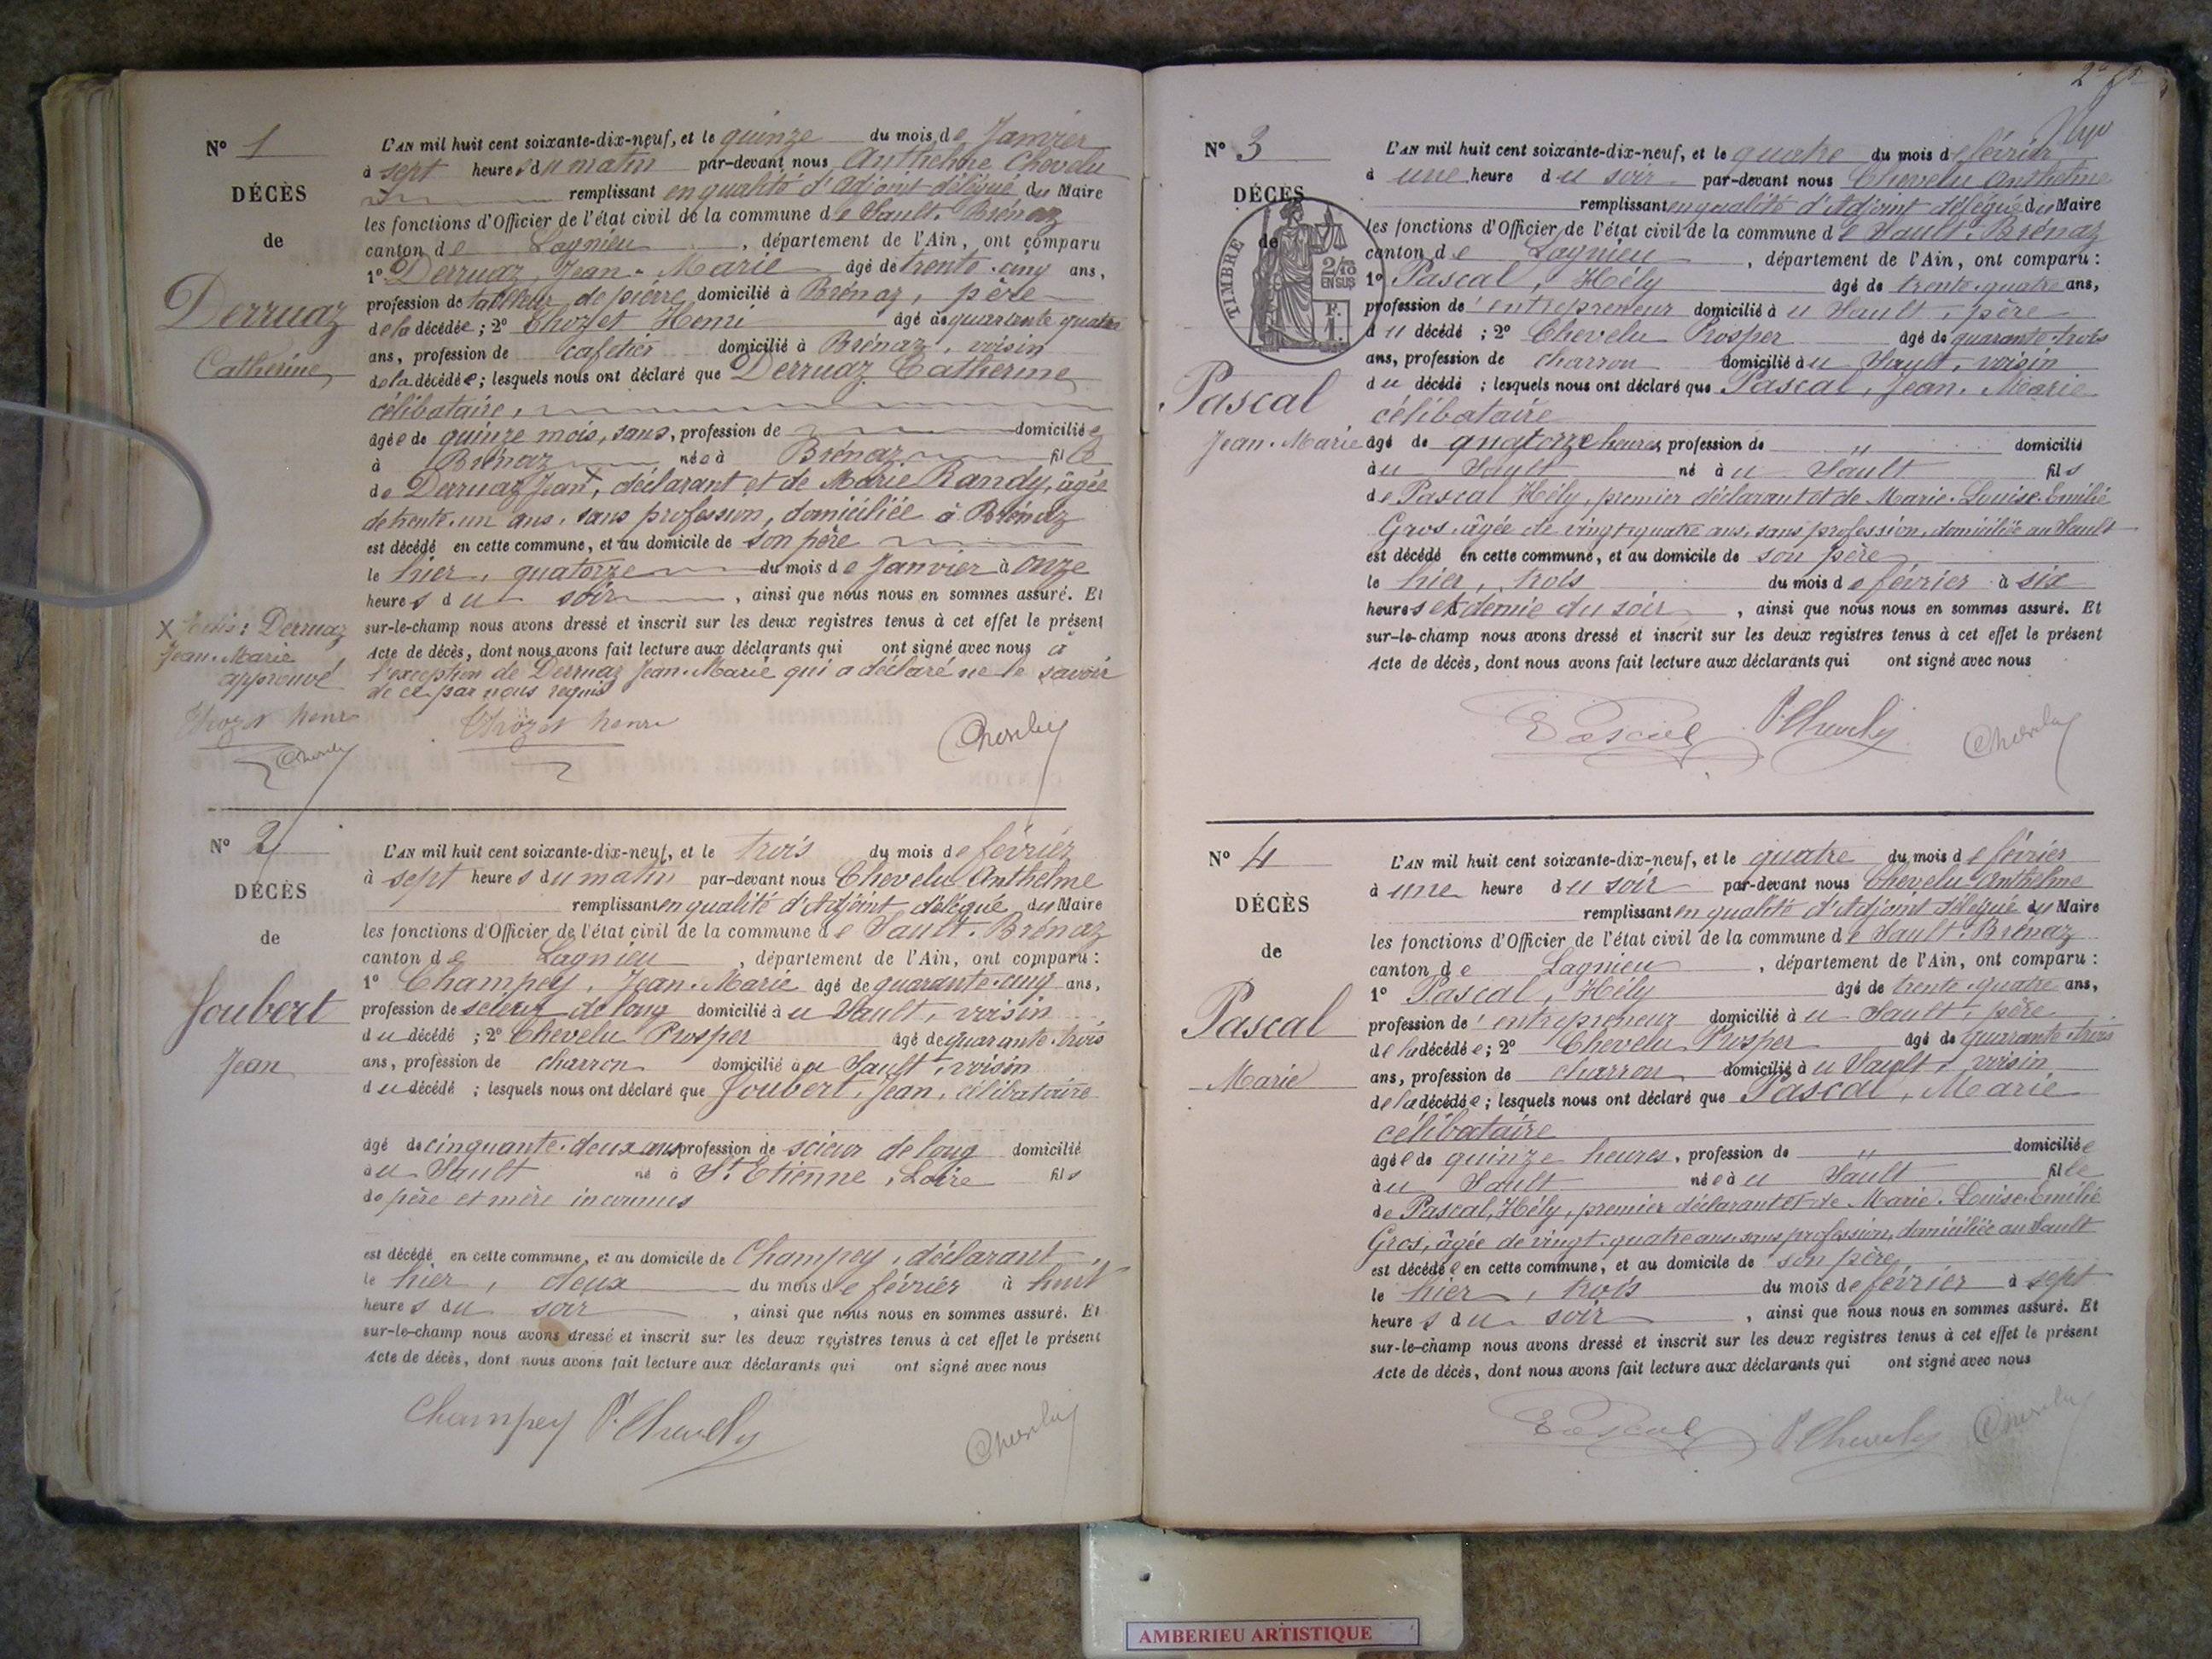 N° 1
DÉCÈS
de
Derruaz
Catherine
L'AN mil huit cent soixante-dix-neuf, et le quinze du mois de Janvier
à sept heures du matin par-devant nous Anthelme Chevelu
remplissant en qualité d'adjoint délégué du Maire
les fonctions d'Officier de l'état civil de la commune de Sault-Brénaz
canton de Lagnieu, département de l'Ain, ont comparu
1° Derruaz, Jean-Marie âgé de trente-cinq ans,
profession de tailleur de pierre domicilié à Brénaz, père
de la décédée; 2° Chozet Henri âgé de quarante quatre
ans, profession de cafetier domicilié à Brénaz, voisin
de la décédée; lesquels nous ont déclaré que Derruaz Catherine
célibataire,
âgée de quinze mois, sans, profession de domiciliée
à Brénaz née à Brénaz fille
de Derruaz Jean X, déclarant et de Marie Randy, âgée
de trente-un ans, sans profession, domiciliée à Brénaz
est décédé en cette commune, et au domicile de son père
le hier, quatorze du mois de Janvier à onze
heures du soir, ainsi que nous nous en sommes assuré. Et
sur-le-champ nous avons dressé et inscrit sur les deux registres tenus à cet effet le présent
Acte de décès, dont nous avons fait lecture aux déclarants qui ont signé avec nous à
l'exception de Derruaz Jean-Marie qui a déclaré ne le savoir
de ce par nous requis
X Derruaz
Jean-Marie
approuvé
Chozet henri
Chevelu
Chozet henri
Chevelu
N° 2
DÉCÈS
de
Joubert
Jean
L'AN mil huit cent soixante-dix-neuf, et le trois du mois de février
à sept heures du matin par-devant nous Chevelu Anthelme
remplissant en qualité d'Adjoint délégué du Maire
les fonctions d'Officier de l'état civil de la commune de Sault-Brénaz
canton de Lagnieu, département de l'Ain, ont comparu :
1° Champey, Jean-Marie âgé de quarante-cinq ans,
profession de scieur de long domicilié au Sault, voisin
du décédé; 2° Chevelu Prosper âgé de quarante-trois
ans, profession de charron domicilié au Sault, voisin
du décédé; lesquels nous ont déclaré que Joubert, Jean, célibataire
âgé de cinquante-deux ans profession de scieur de long domicilié
au Sault né à St Etienne, Loire fils
de père et mère inconnus
est décédé en cette commune, et au domicile de Champey, déclarant,
le hier, deux du mois de février à huit
heures du soir, ainsi que nous nous en sommes assuré. Et
sur-le-champ nous avons dressé et inscrit sur les deux registres tenus à cet effet le présent
Acte de décès, dont nous avons fait lecture aux déclarants qui ont signé avec nous
Champey P. Chevelu
Chevelu
N° 3
DÉCÈS
de
TIMBRE
2/10 EN SUS
F. 1.
Pascal
Jean-Marie
L'AN mil huit cent soixante-dix-neuf, et le quatre du mois de février
à une heure du soir par-devant nous Chevelu Anthelme
remplissant en qualité d'Adjoint délégué du Maire
les fonctions d'Officier de l'état civil de la commune de Sault-Brénaz
canton de Lagnieu, département de l'Ain, ont comparu :
1° Pascal, Hély âgé de trente-quatre ans,
profession d'entrepreneur domicilié au Sault, père
du décédé; 2° Chevelu Prosper âgé de quarante-trois
ans, profession de charron domicilié au Sault, voisin
du décédé; lesquels nous ont déclaré que Pascal, Jean-Marie
célibataire
âgé de quatorze heures, profession de " domicilié
au Sault né au Sault fils
de Pascal Hély, premier déclarant et de Marie-Louise-Emilie
Gros, âgée de vingt-quatre ans, sans profession, domiciliée au Sault
est décédé en cette commune, et au domicile de son père
le hier, trois du mois de février à six
heures et demie du soir, ainsi que nous nous en sommes assuré. Et
sur-le-champ nous avons dressé et inscrit sur les deux registres tenus à cet effet le présent
Acte de décès, dont nous avons fait lecture aux déclarants qui ont signé avec nous
E Pascal P. Chevelu
Chevelu
N° 4
DÉCÈS
de
Pascal
Marie
L'AN mil huit cent soixante-dix-neuf, et le quatre du mois de février
à une heure du soir par-devant nous Chevelu Anthelme
remplissant en qualité d'Adjoint délégué du Maire
les fonctions d'Officier de l'état civil de la commune de Sault-Brénaz
canton de Lagnieu, département de l'Ain, ont comparu :
1° Pascal, Hély âgé de trente-quatre ans,
profession d'entrepreneur domicilié au Sault, père
de la décédée; 2° Chevelu Prosper âgé de quarante-trois
ans, profession de charron domicilié au Sault, voisin
de la décédée; lesquels nous ont déclaré que Pascal, Marie
célibataire
âgée de quinze heures, profession de " domiciliée
au Sault née au Sault fille
de Pascal, Hély, premier déclarant et de Marie-Louise-Emilie
Gros, âgée de vingt-quatre ans, sans profession, domiciliée au Sault
est décédée en cette commune, et au domicile de son père
le hier, trois du mois de février à sept
heures du soir, ainsi que nous nous en sommes assuré. Et
sur-le-champ nous avons dressé et inscrit sur les deux registres tenus à cet effet le présent
Acte de décès, dont nous avons fait lecture aux déclarants qui ont signé avec nous
E Pascal P. Chevelu
Chevelu
AMBERIEU ARTISTIQUE